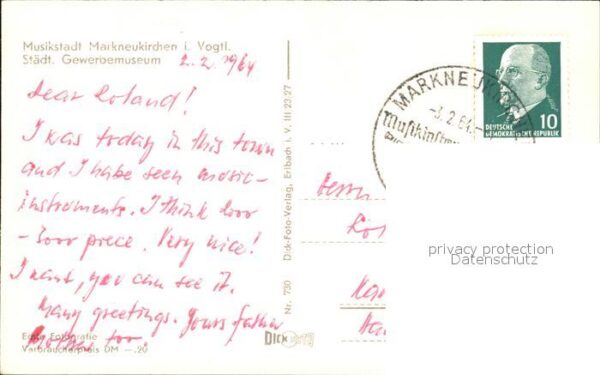 Musikstadt Markneukirchen i. Vogtl.
Städt. Gewerbemuseum
2.2.1964
Dear Roland!
I was today in this town
and I have seen music-
instruments. I think 2000
- 3000 piece. Very nice!
I want, you can see it.
Many greetings. Yours father
Mother too.
Echte Fotografie
Verbraucherpreis DM —.20
Dick-Foto-Verlag, Erlbach i. V. III 23 27
Nr. 730
DICK
MARKNEUKIR
-3.2.64.-
DEUTSCHE
DEMOKRATISCHE REPUBLIK
10
Herrn
privacy protection
Datenschutz